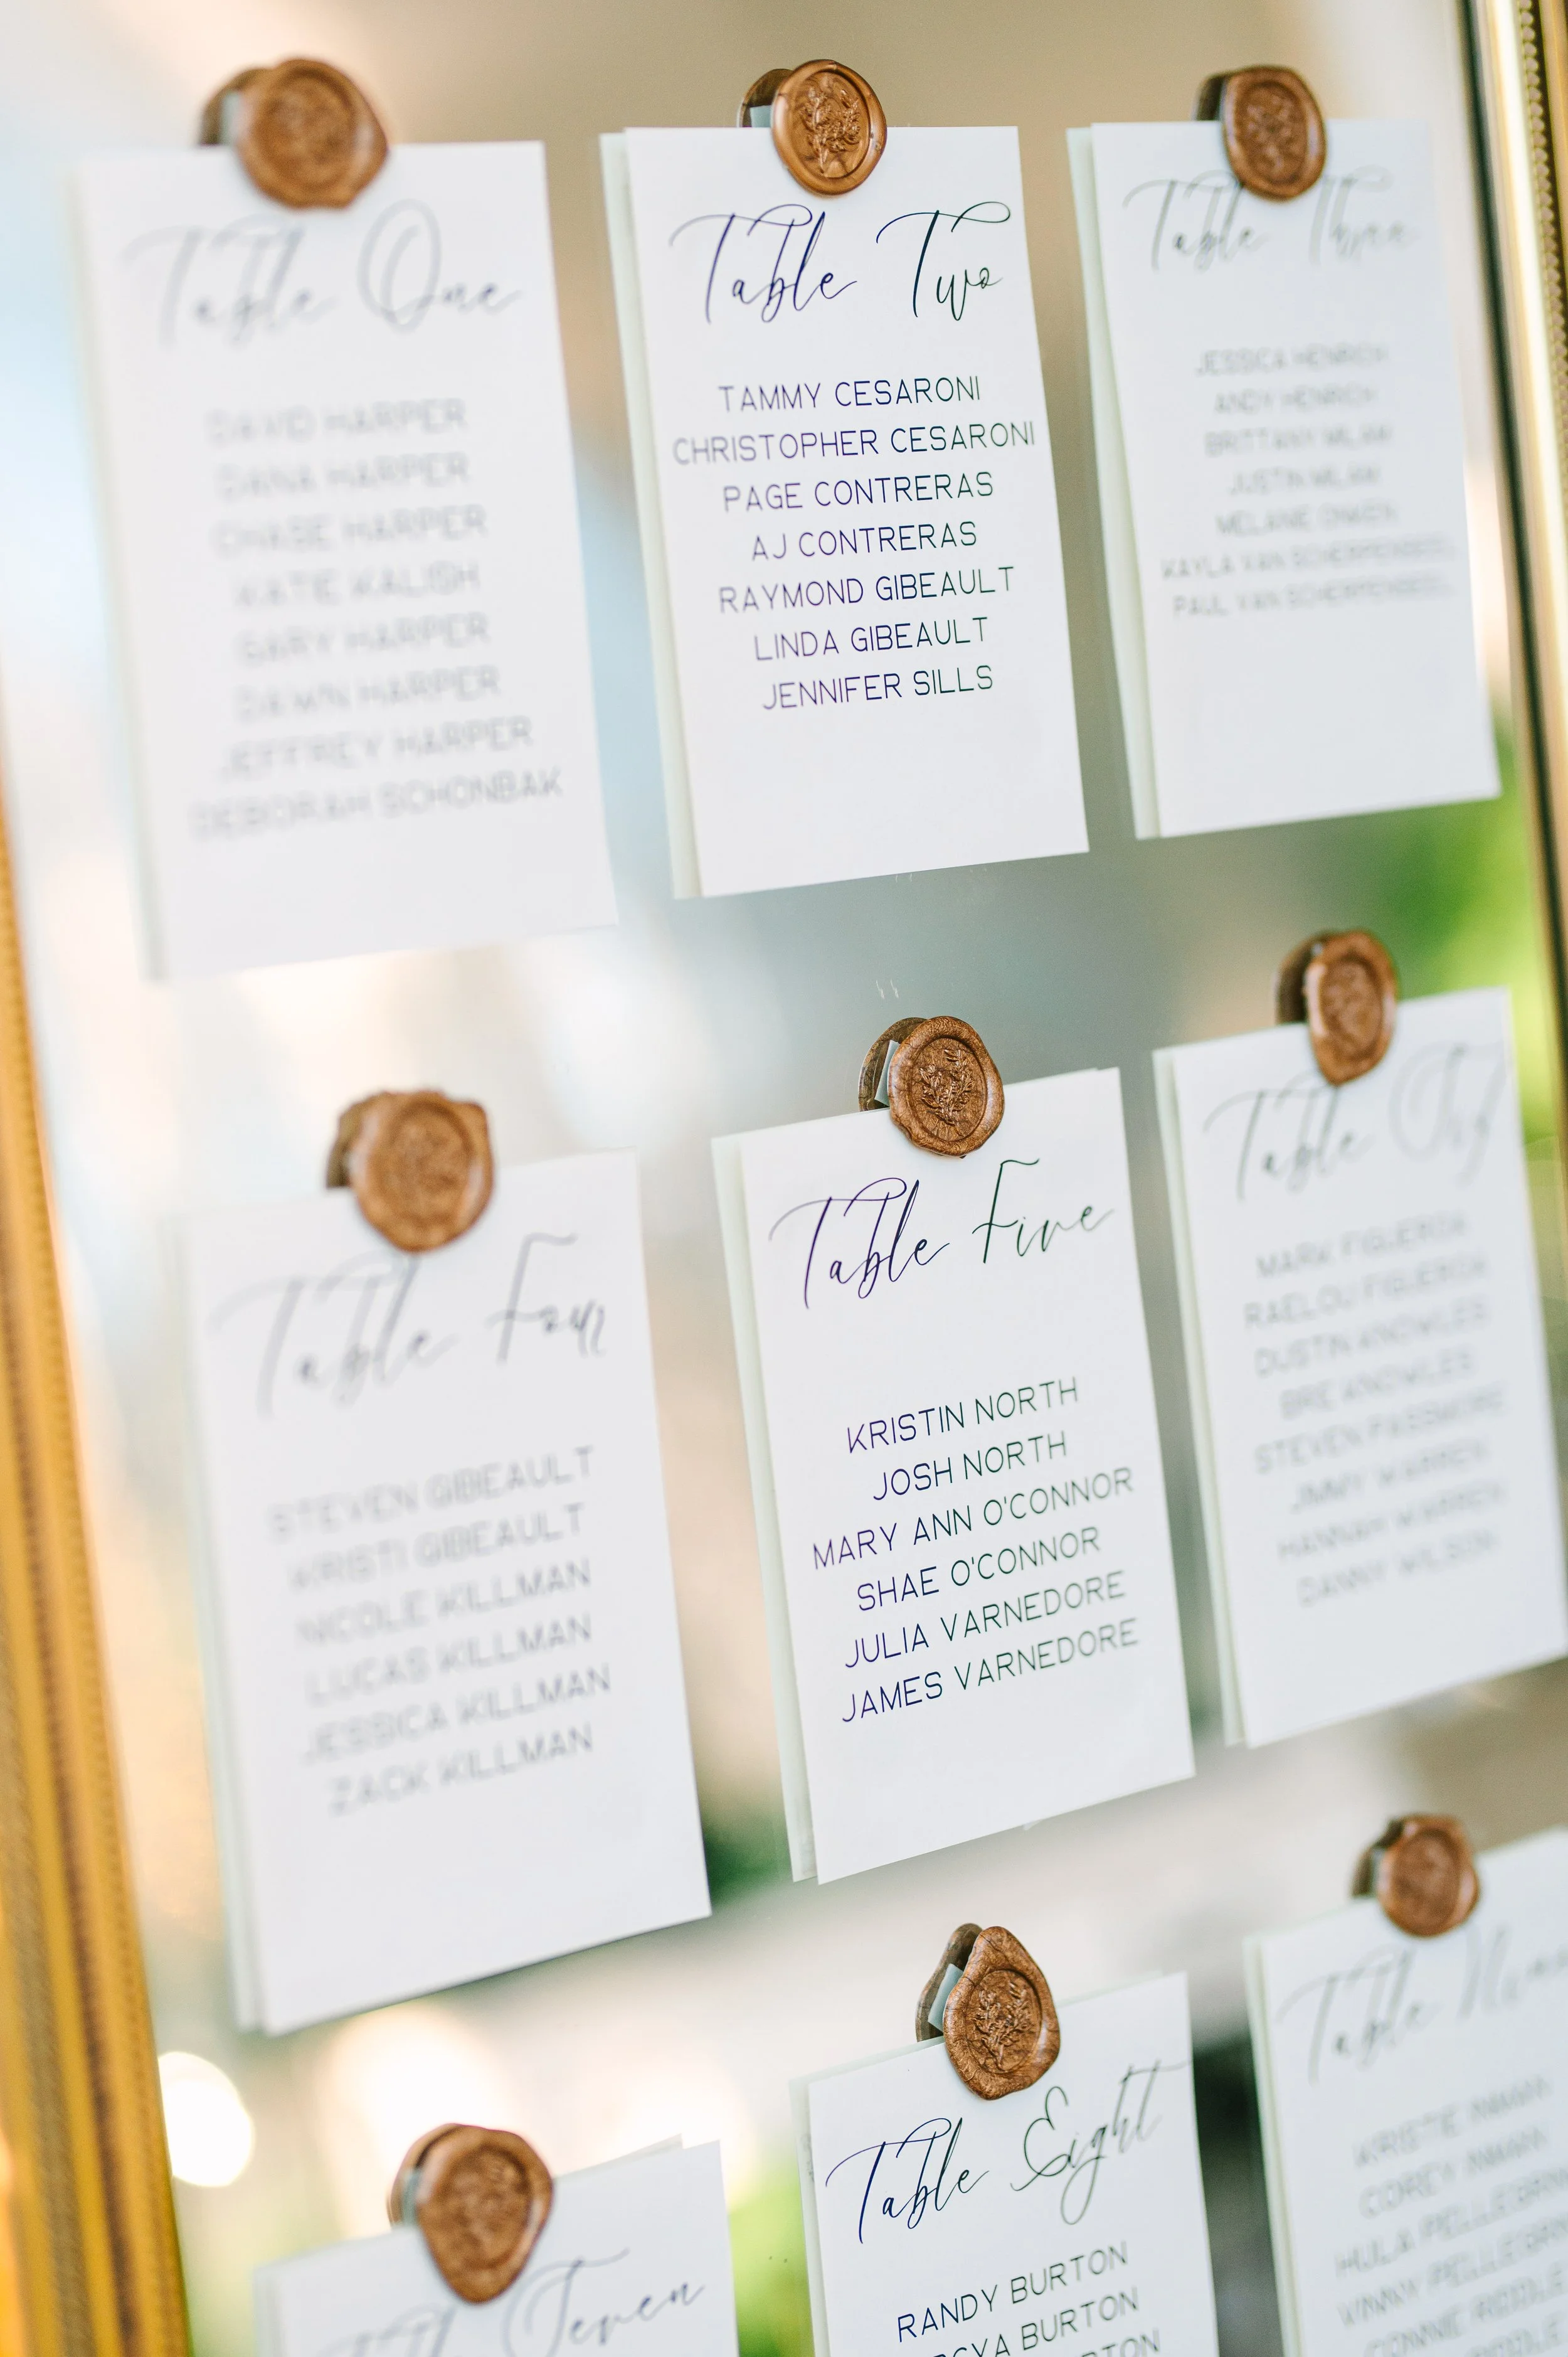 Table One
DAVID HARPER
DANA HARPER
CHASE HARPER
KATIE KALISH
GARY HARPER
DAWN HARPER
JEFFREY HARPER
DEBORAH SCHONBAK
Table Two
TAMMY CESARONI
CHRISTOPHER CESARONI
PAGE CONTRERAS
AJ CONTRERAS
RAYMOND GIBEAULT
LINDA GIBEAULT
JENNIFER SILLS
Table Three
JESSICA HENRICH
ANDY HENRICH
BRITTANY
JUSTIN
MELANIE
KAYLA VAN
PAUL VAN
Table Four
STEVEN GIBEAULT
KRISTI GIBEAULT
NICOLE KILLMAN
LUCAS KILLMAN
JESSICA KILLMAN
ZACK KILLMAN
Table Five
KRISTIN NORTH
JOSH NORTH
MARY ANN O'CONNOR
SHAE O'CONNOR
JULIA VARNEDORE
JAMES VARNEDORE
Table Six
MARK FIGUEROA
RAELOU FIGUEROA
DUSTIN KNOWLES
BRE KNOWLES
STEVEN PASSMORE
JIMMY WARREN
HANNAH WARREN
DANNY WILSON
Seven
Table Eight
RANDY BURTON
BURTON
Table
KRISTIE
COREY
CONNIE RIDDLE